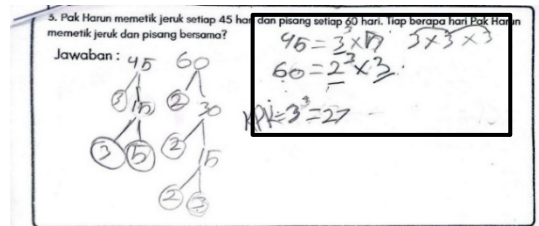 5. Pak Harun memetik jeruk setiap 45 hari dan pisang setiap 60 hari. Tiap berapa hari Pak Harun
memetik jeruk dan pisang bersama?
Jawaban :
45
3 15
3 5
60
2 30
2 15
2 3
45 = 3³ ×
3×3×3
60 = 2³ × 3
KPK = 3³ = 27